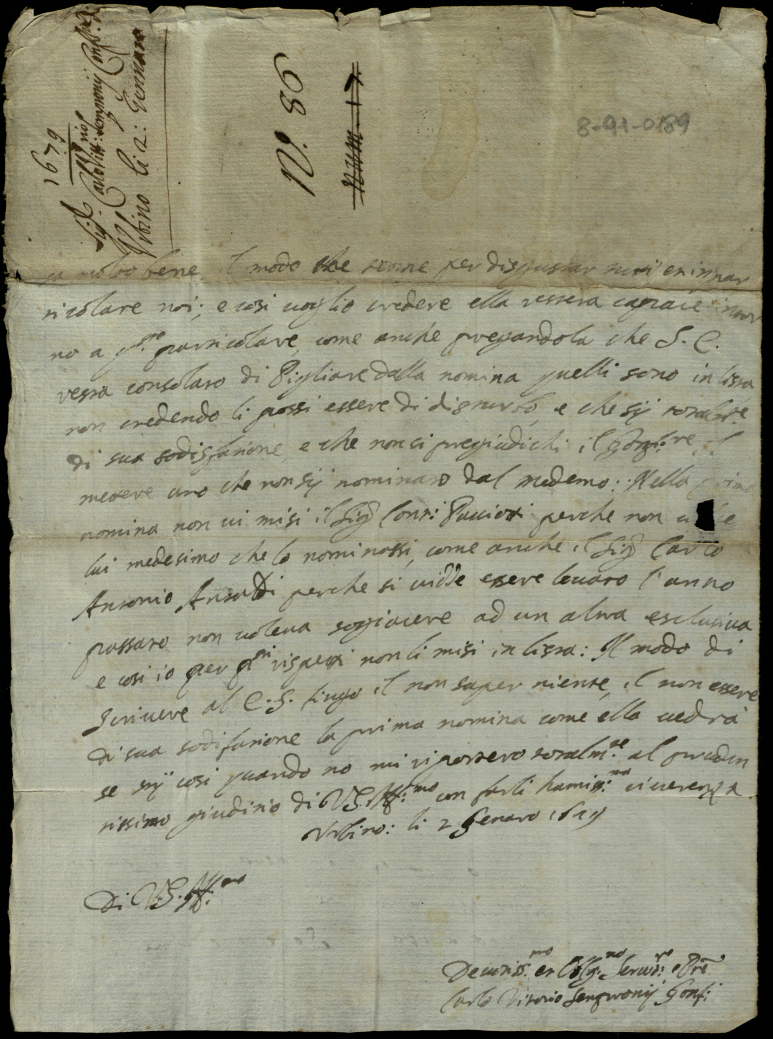 1679
Urbino li 2: Gennaro
N. 86
num. 17
8-91-0189
molto bene il modo che tenne per disgustar
ticolare noi; e così uoglio credere ella restera capace
no a particolare, come anche pregandola che S. E.
resta consolato di Pigliare dalla nomina quelli sono in lista
non credendo li possi essere di disgusto, e che sij totalmte
di sua sodisfatione, e che non ci pregiudichi il
metere uno che non sij nominato dal medemo: Nella prima
nomina non ui misi il Sigr Conte perche non
lui medesimo che lo nominassi, come anche il Sigr Carlo
Antonio Ansaldi perche si uidde essere leuato l'anno
passato non uoleua soggiacere ad un altra esclusiua
e così io per qsti rispetti non li misi in lista: Il modo di
scriuere al C. S. fingo il non saper niente, il non essere
di sua sodisfatione la prima nomina come ella uedrà
se sij così quando no mi riportero totalmte al pruden
tissimo giuditio di VS Illma con farli humilma riuerenza
Urbino: li 2 Genaro 1679
Di V.S. Illma
Deuotismo et Oblgmo Seruitre
Carlo Vitorio Sempronij Gonfre